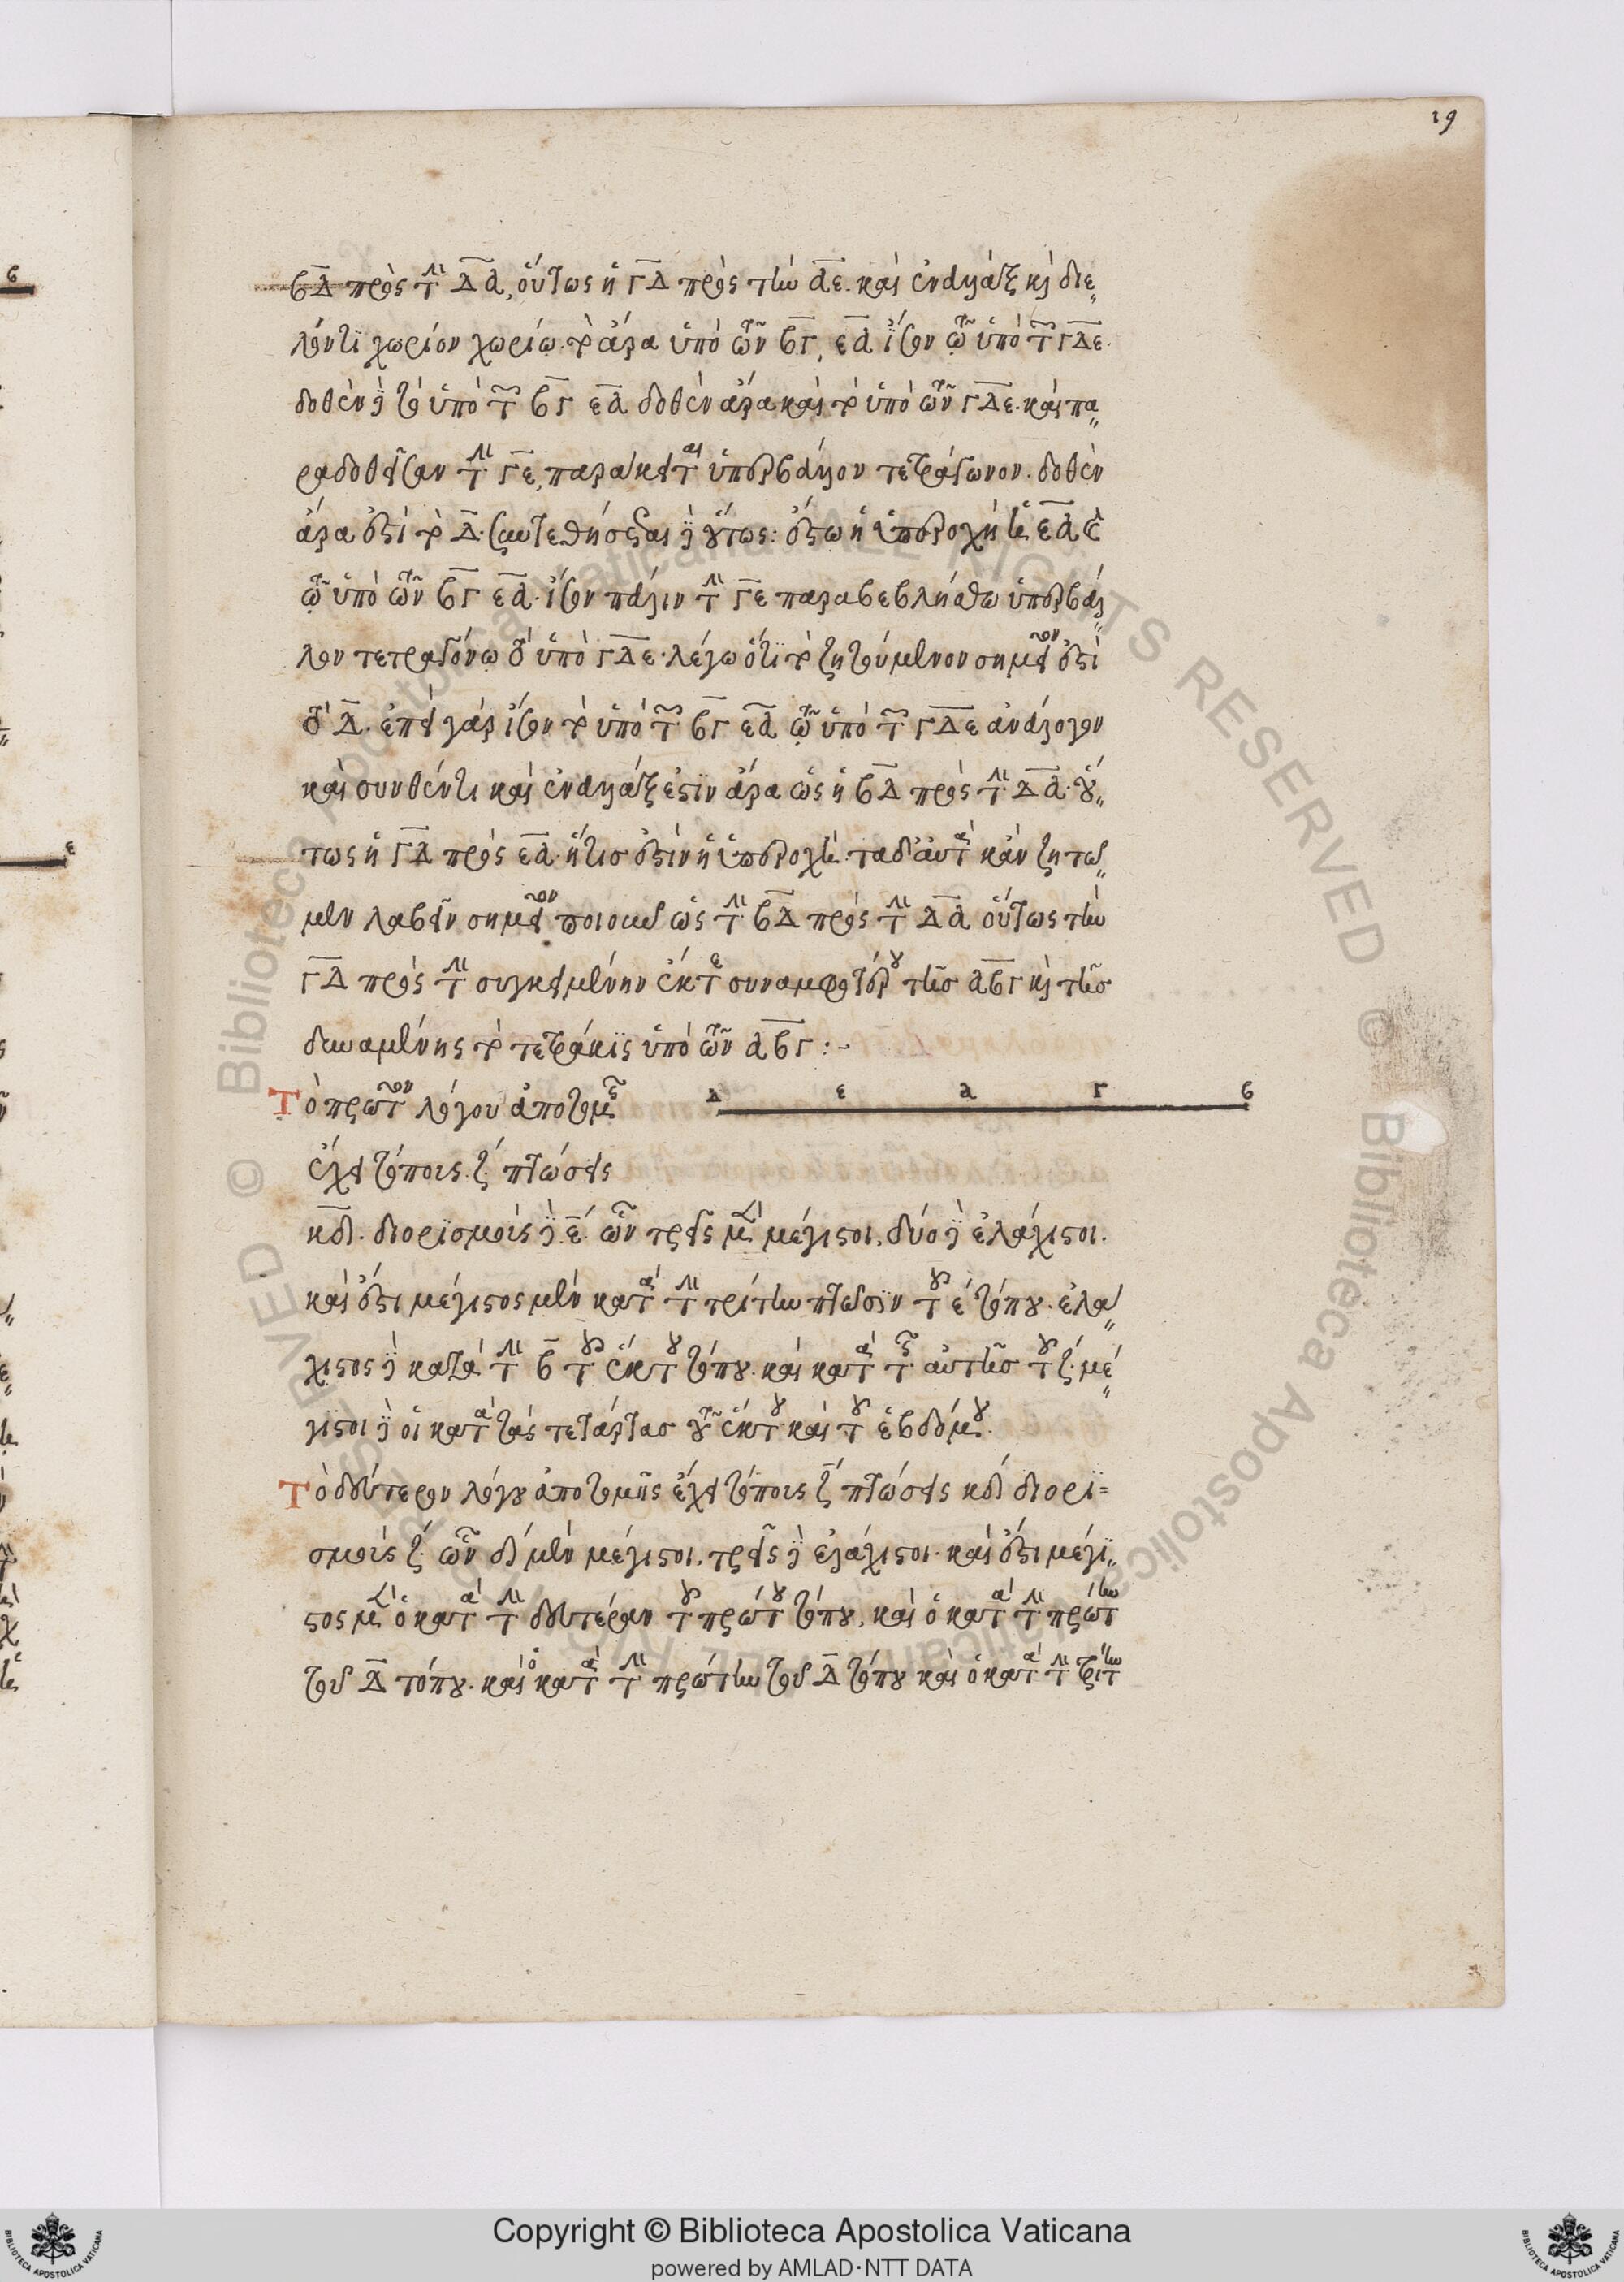 19
ΒΔ πρὸς τὴν ΔΑ, οὕτως ἡ ΓΔ πρὸς τὴν ΑΕ. καὶ ἐναλλὰξ κὶ διε
λόντι χωρίον χωρίῳ. τὸ ἄρα ὑπὸ τῶν ΒΓ, ΕΑ ἴσον τῷ ὑπὸ τῶν ΓΔΕ.
δοθὲν δὲ τὸ ὑπὸ τῶν ΒΓ ΕΑ δοθὲν ἄρα καὶ τὸ ὑπὸ τῶν ΓΔΕ. καὶ πα
ρὰ δοθεῖσαν τὴν ΓΕ, παράκειται ὑπερβάλλον τετράγωνον. δοθὲν
ἄρα ἐστὶ τὸ Δ. συντεθήσεται δὲ οὕτως: ἔστω ἡ ὑπεροχὴ ἡ ΕΑ
τῷ ὑπὸ τῶν ΒΓ ΕΑ. ἴσον πάλιν τὴν ΓΕ παραβεβλήσθω ὑπερβάλ
λον τετραγώνῳ τὸ ὑπὸ ΓΔΕ. λέγω ὅτι τὸ ζητούμενον σημεῖον ἐστὶ
τὸ Δ. ἐπεὶ γὰρ ἴσον τὸ ὑπὸ τῶν ΒΓ ΕΑ τῷ ὑπὸ τῶν ΓΔΕ ἀνάλογον
καὶ συνθέντι καὶ ἐναλλὰξ ἐστὶν ἄρα ὡς ἡ ΒΔ πρὸς τὴν ΔΑ. οὕ
τως ἡ ΓΔ πρὸς ΕΑ. ἥτις ἐστὶν ἡ ὑπεροχή. τὰ δ' αὐτὰ κἂν ζητῶ
μεν λαβεῖν σημεῖον ποιοῦν ὡς τὴν ΒΔ πρὸς τὴν ΔΑ οὕτως τὴν
ΓΔ πρὸς τὴν συγκειμένην ἔκ τε συναμφοτέρου τῆς ΑΒΓ κὶ τῆς
δυναμένης τὸ τετράκις ὑπὸ τῶν ΑΒΓ :-
Τὸ πρῶτον λόγου ἀποτομῆς
Δ Ε Α Γ Β
ἔχει τόπους ζ. πτώσεις
κδ. διορισμοὺς δὲ ε. ὧν τρεῖς μὲν μέγιστοι, δύο δὲ ἐλάχιστοι.
καὶ ἔστι μέγιστος μὲν κατὰ τὴν τρίτην πτῶσιν τοῦ ε τόπου. ἐλά
χιστος δὲ κατὰ τὴν Β τοῦ ἕκτου τόπου. καὶ κατὰ τῆς αὐτῆς τοῦ ζ. μέ
γιστοι δὲ οἱ κατὰ τὰς τετάρτας τοῦ ἕκτου καὶ τοῦ ἑβδόμου.
Τὸ δεύτερον λόγου ἀποτομῆς ἔχει τόπους ζ πτώσεις κδ διορι
σμοὺς ζ. ὧν δ μὲν μέγιστοι. τρεῖς δὲ ἐλάχιστοι. καὶ ἔστι μέγι
στος μὲν ὁ κατὰ τὴν δευτέραν τοῦ πρώτου τόπου, καὶ ὁ κατὰ τὴν πρώτην
τοῦ Δ τόπου. καὶ ὁ κατὰ τὴν πρώτην τοῦ Δ τόπου καὶ ὁ κατὰ τὴν τρίτην
© Biblioteca Apostolica Vaticana ALL RIGHTS RESERVED © Biblioteca Apostolica Vaticana ALL RIGHTS RESERVED
Copyright © Biblioteca Apostolica Vaticana
powered by AMLAD·NTT DATA
BIBLIOTECA APOSTOLICA VATICANA
BIBLIOTECA APOSTOLICA VATICANA